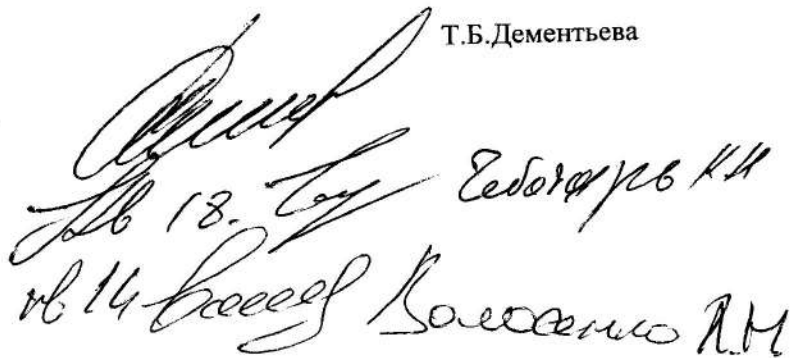 Т.Б.Дементьева
кв 18. Чеботарь К И
кв 14 Волосенко Л.Н